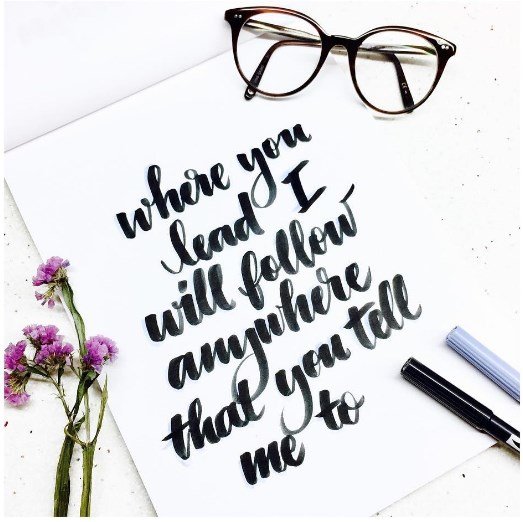 where you
lead I
will follow
anywhere
that you tell
me to